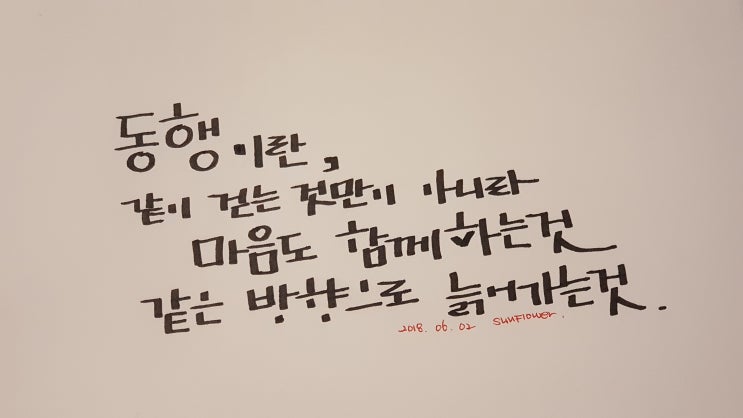 동행이란,
같이 걷는 것만이 아니라
마음도 함께 하는것
같은 방향으로 늙어가는것.
2018. 06. 02 sunflower.